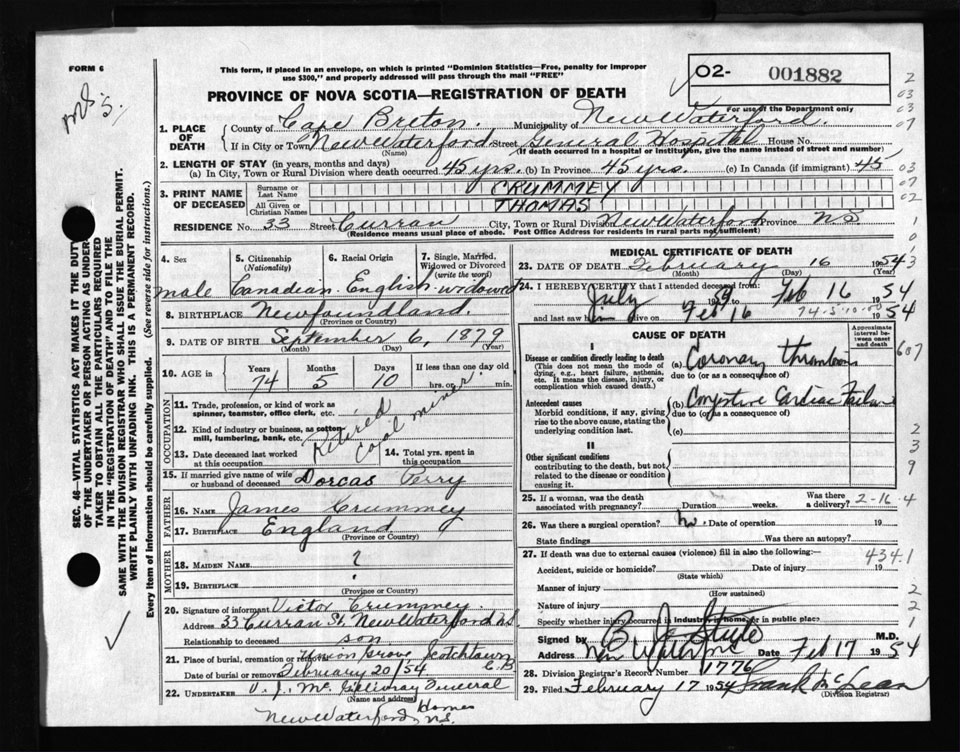 FORM 6
This form, if placed in an envelope, on which is printed "Dominion Statistics—Free, penalty for improper
use $300," and properly addressed will pass through the mail "FREE"
O2- 001882
For use of the Department only
PROVINCE OF NOVA SCOTIA—REGISTRATION OF DEATH
1. PLACE OF DEATH
County of Cape Breton. Municipality of New Waterford.
If in City or Town New Waterford Street General Hospital House No.
(Name) (If death occurred in a hospital or institution, give the name instead of street and number)
2. LENGTH OF STAY (in years, months and days)
(a) In City, Town or Rural Division where death occurred 45 yrs. (b) In Province 45 yrs. (c) In Canada (if immigrant) 45
3. PRINT NAME OF DECEASED
Surname or Last Name CRUMMEY
All Given or Christian Names THOMAS
RESIDENCE No. 33 Street Curran City, Town or Rural Division New Waterford Province NS
(Residence means usual place of abode. Post Office Address for residents in rural parts not sufficient)
4. Sex male
5. Citizenship (Nationality) Canadian
6. Racial Origin English
7. Single, Married, Widowed or Divorced (write the word) widowed
8. BIRTHPLACE Newfoundland.
(Province or Country)
9. DATE OF BIRTH September 6, 1879
(Month) (Day) (Year)
10. AGE in Years 74 Months 5 Days 10 If less than one day old hrs. or min.
OCCUPATION
11. Trade, profession, or kind of work as spinner, teamster, office clerk, etc.
12. Kind of industry or business, as cotton mill, lumbering, bank, etc.
retired
coal miner
13. Date deceased last worked at this occupation
14. Total yrs. spent in this occupation
15. If married give name of wife or husband of deceased Dorcas Perry
FATHER
16. NAME James Crummey
17. BIRTHPLACE England
(Province or Country)
MOTHER
18. MAIDEN NAME ?
19. BIRTHPLACE
(Province or Country)
20. Signature of informant Victor Crummey.
Address 33 Curran St. New Waterford N.S.
Relationship to deceased son
21. Place of burial, cremation or removal Union Grove Scotchtown C.B
Date of burial or removal February 20/54
22. UNDERTAKER V. J. Mc Gillivray Funeral
(Name and address) Homes
New Waterford, NS.
MEDICAL CERTIFICATE OF DEATH
23. DATE OF DEATH February 16 1954
(Month) (Day) (Year)
24. I HEREBY CERTIFY that I attended deceased from:
July Feb 16 1954
and last saw h alive on Feb 16 1954
CAUSE OF DEATH
Approximate interval between onset and death
I
Disease or condition directly leading to death
(This does not mean the mode of dying, e.g., heart failure, asthenia, etc. It means the disease, injury, or complication which caused death.)
(a) Coronary thrombosis
due to (or as a consequence of)
Antecedent causes
Morbid conditions, if any, giving rise to the above cause, stating the underlying condition last.
(b) Congestive Cardiac Failure
due to (or as a consequence of)
(c)
II
Other significant conditions
contributing to the death, but not related to the disease or condition causing it.
25. If a woman, was the death associated with pregnancy? Duration weeks. Was there a delivery? 2-16-4
26. Was there a surgical operation? no. Date of operation 19
State findings Was there an autopsy?
27. If death was due to external causes (violence) fill in also the following:— 434.1
Accident, suicide or homicide? Date of injury 19
(State which)
Manner of injury
(How sustained)
Nature of injury
Specify whether injury occurred in industry, in home, or in public place?
Signed by M.D.
Address New Waterford Date Feb 17 1954
28. Division Registrar's Record Number 1776
29. Filed February 17 1954 Frank McLean
(Division Registrar)
SEC. 46—VITAL STATISTICS ACT MAKES IT THE DUTY
OF THE UNDERTAKER OR PERSON ACTING AS UNDER-
TAKER TO OBTAIN ALL THE PARTICULARS REQUIRED
IN THE "REGISTRATION OF DEATH" AND TO FILE THE
SAME WITH THE DIVISION REGISTRAR WHO SHALL ISSUE THE BURIAL PERMIT.
WRITE PLAINLY WITH UNFADING INK. THIS IS A PERMANENT RECORD.
Every item of information should be carefully supplied. (See reverse side for instructions.)